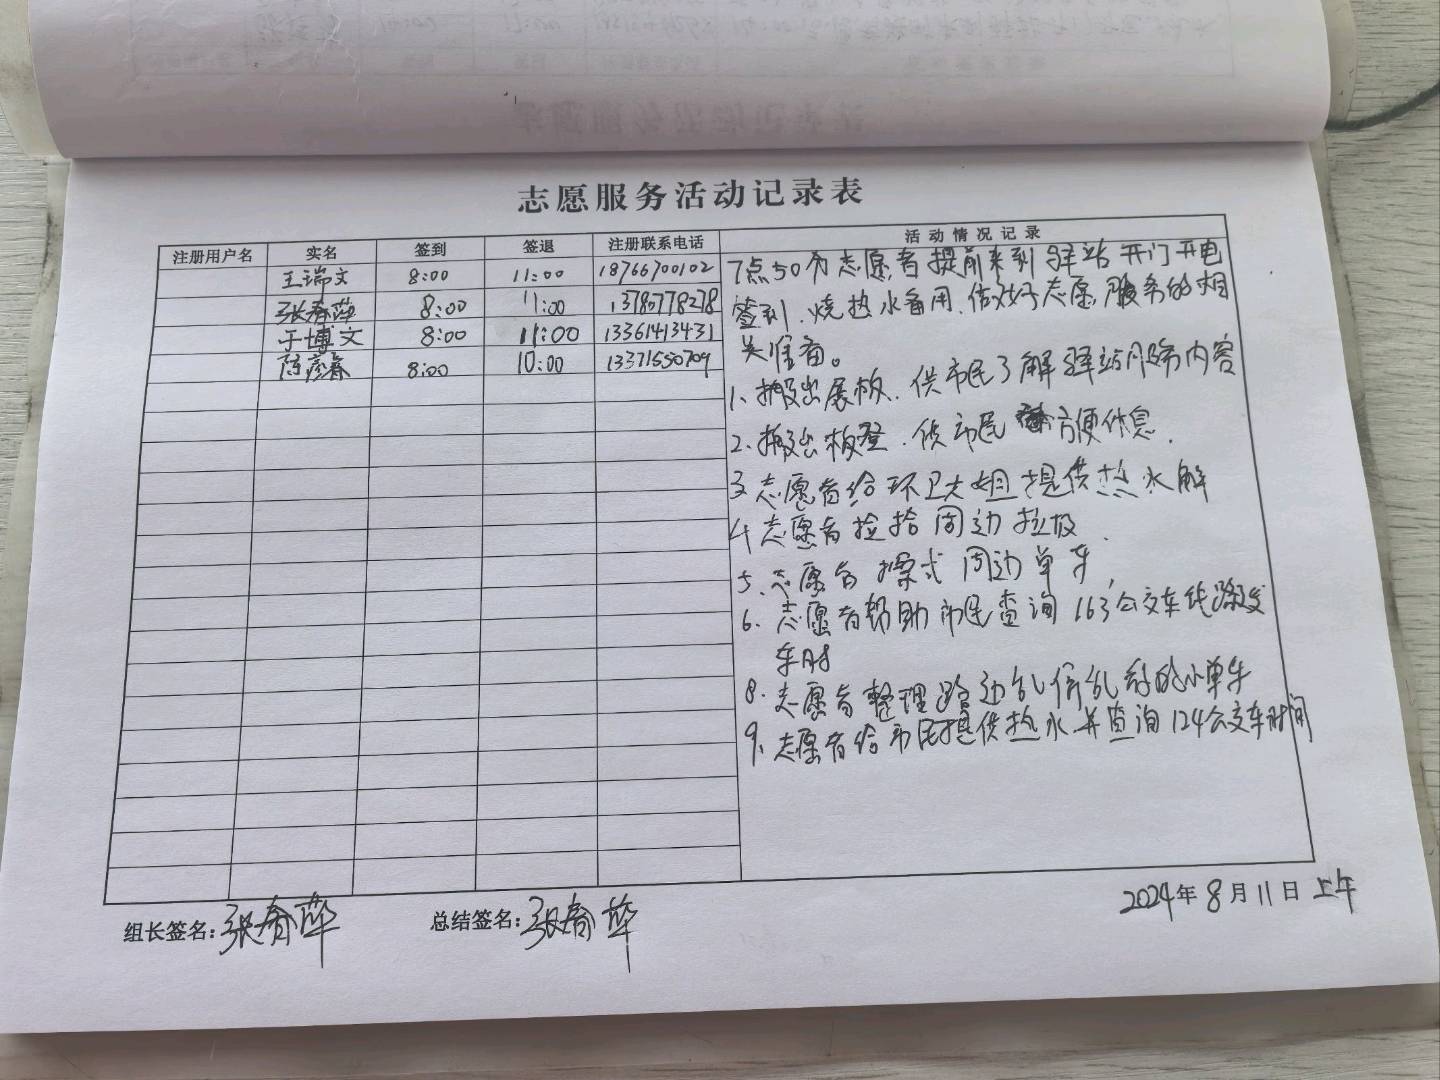 志愿服务活动记录表
注册用户名 实名 签到 签退 注册联系电话 活动情况记录
王瑞文 8:00 11:00 18766700102
张春苹 8:00 11:00 13780778278
于博文 8:00 11:00 13361413431
陈彦春 8:00 10:00 13371550709
7点50分志愿者提前来到驿站开门开电
签到.烧热水备用.做好志愿服务的相
关准备。
1、搬出展板.供市民了解驿站服务内容
2、搬出板凳.供市民方便休息.
3 志愿者给环卫大姐提供热水解
4 志愿者捡拾周边垃圾.
5、志愿者擦式周边单车
6. 志愿者帮助市民查询163公交车线路发
车时
8. 志愿者整理路边乱停乱放的小单车
9、志愿者给市民提供热水并查询124公交车时间
组长签名:张春苹 总结签名:张春苹 2024年8月11日上午